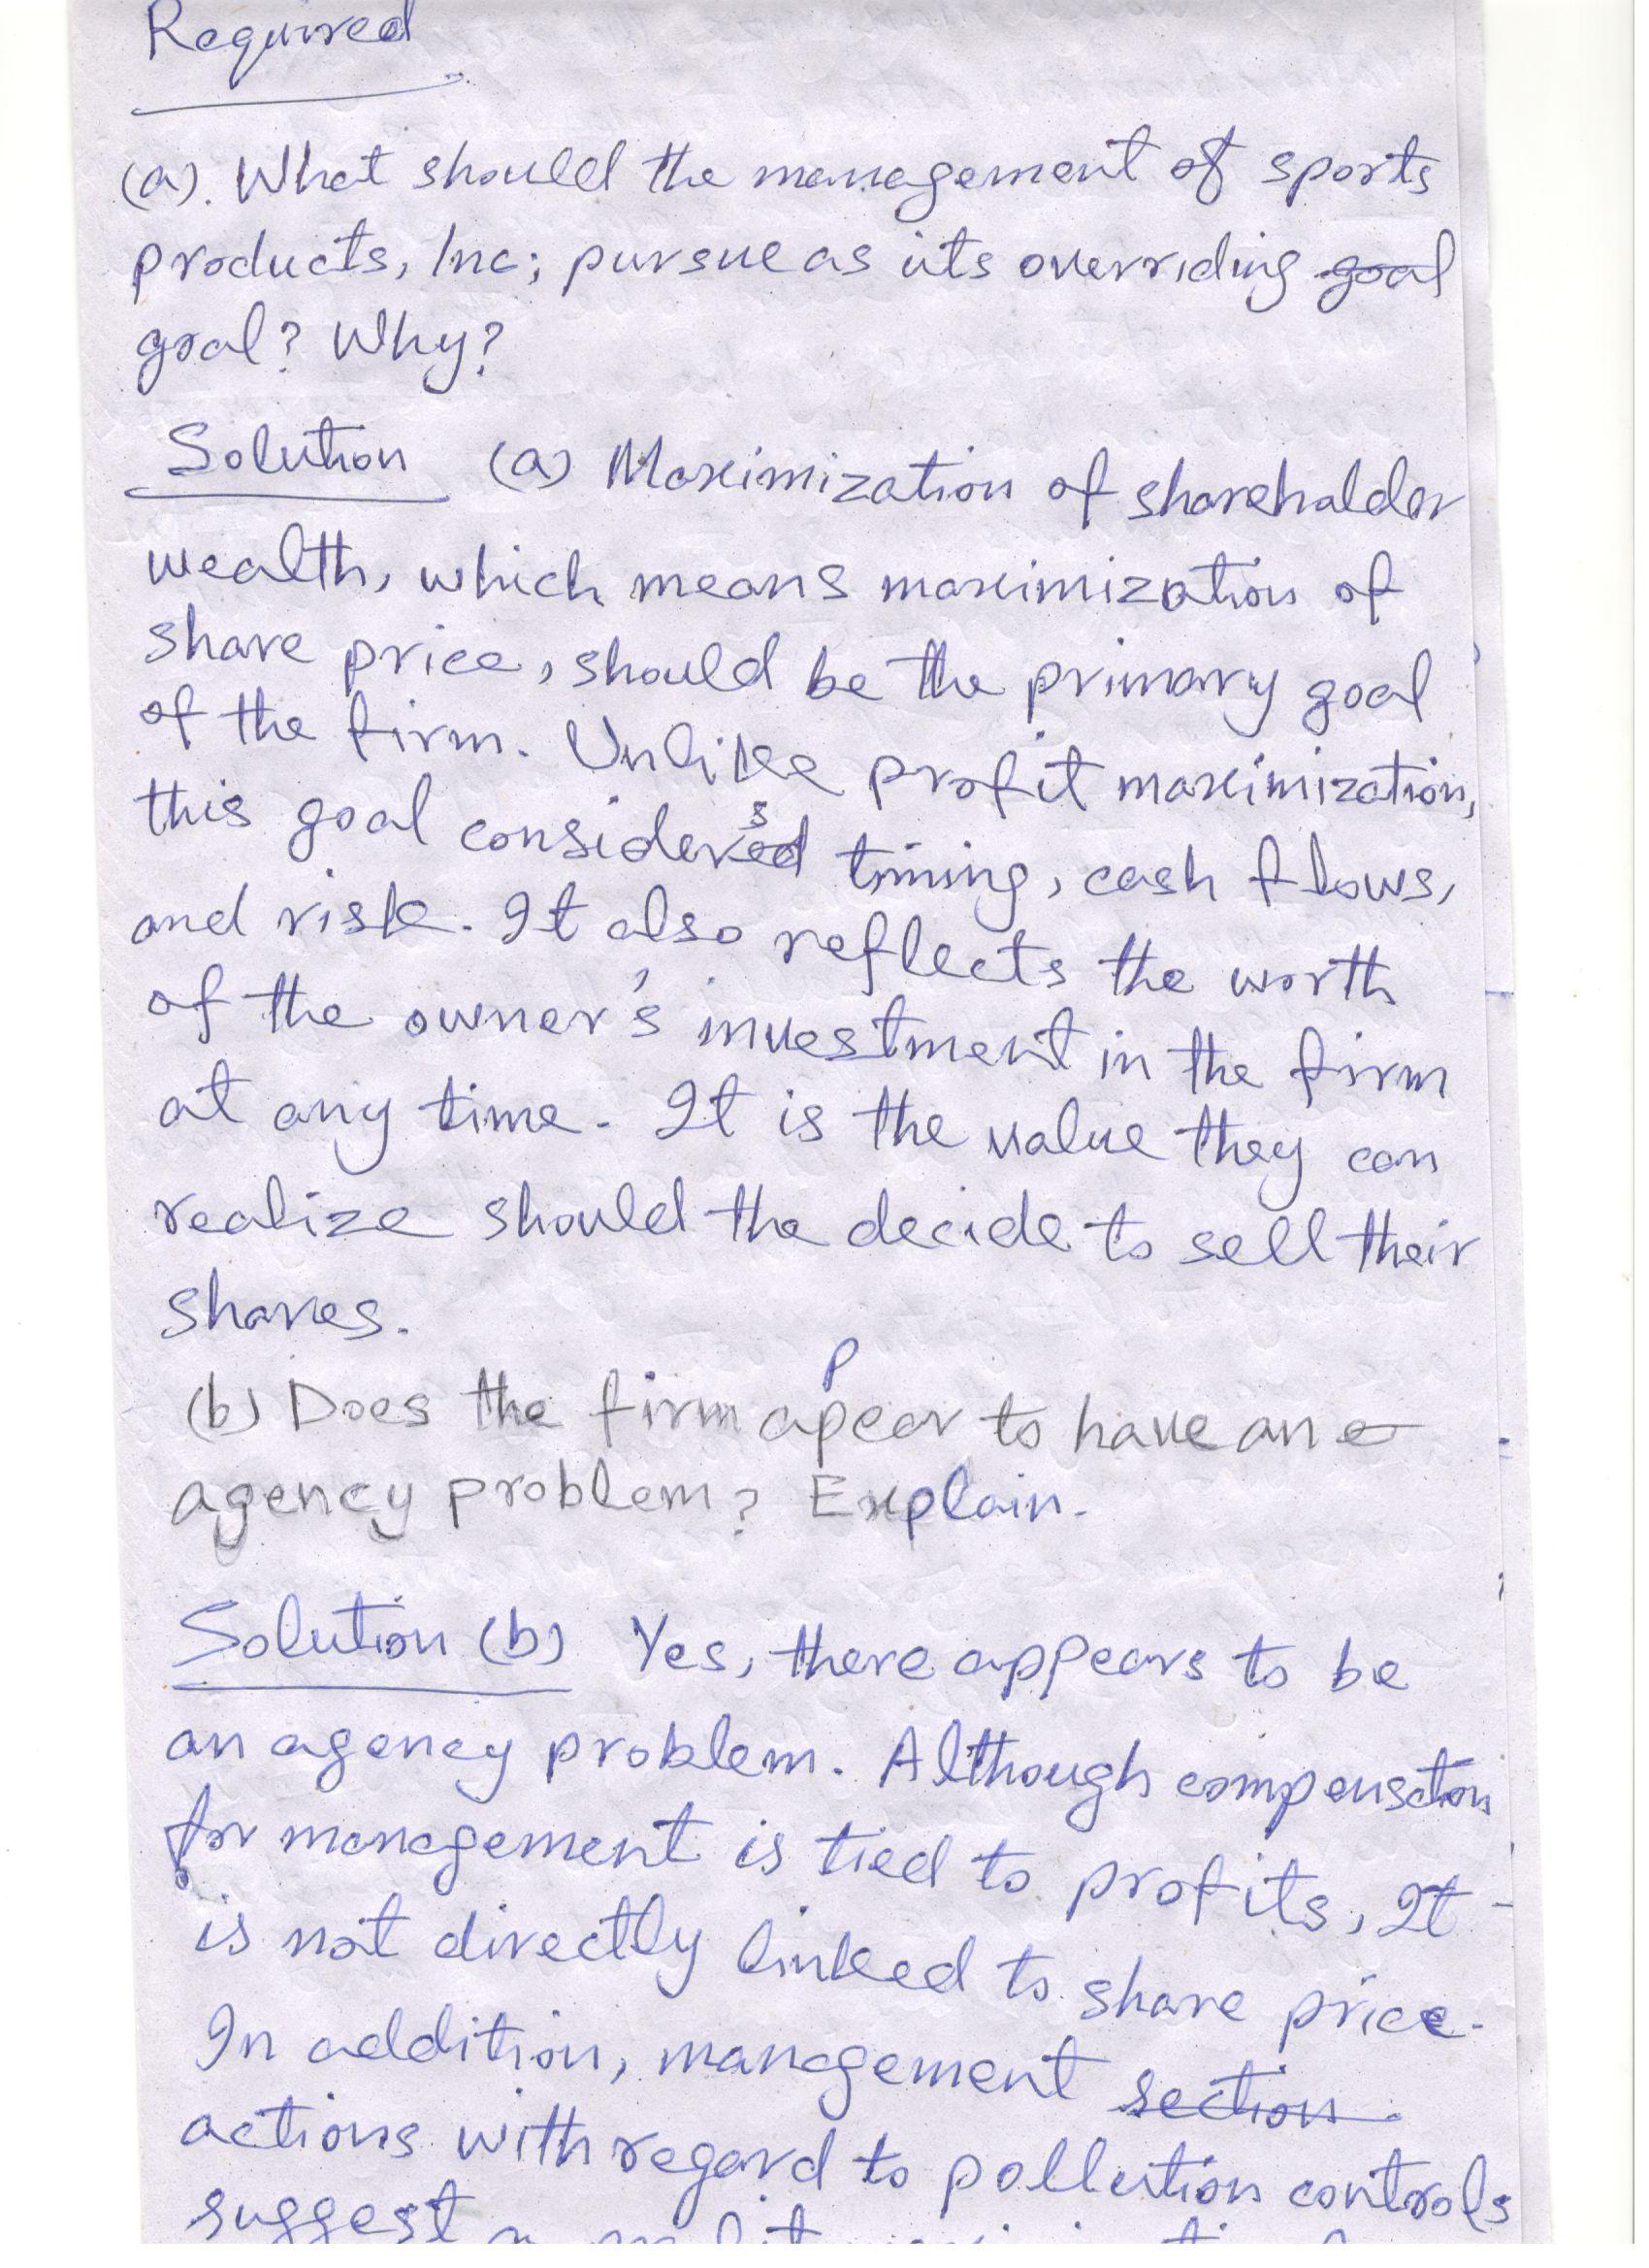 Required
(a). What should the management of sports
products, Inc; pursue as its overriding goal
goal? Why?
Solution (a) Maximization of shareholder
wealth, which means maximization of
share price, should be the primary goal
of the firm. Unlike profit maximization,
this goal considers timing, cash flows,
and risk. It also reflects the worth
of the owner's investment in the firm
at any time. It is the value they can
realize should the decide to sell their
shares.
(b) Does the firm appear to have an
agency problem? Explain.
Solution (b) Yes, there appears to be
an agency problem. Although compensation
for management is tied to profits, It
is not directly linked to share price.
In addition, management section
actions with regard to pollution controls
suggest a profit